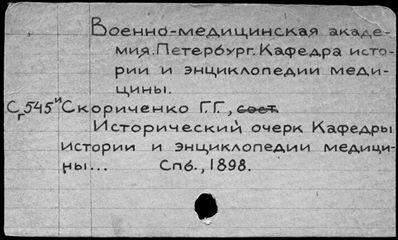 Военно-медицинская акаде-
мия. Петербург. Кафедра исто-
рии и энциклопедии меди-
цины.
Сг545и Скориченко Г.Г., сост.
Исторический очерк Кафедры
истории и энциклопедии медици-
ны... Спб., 1898.